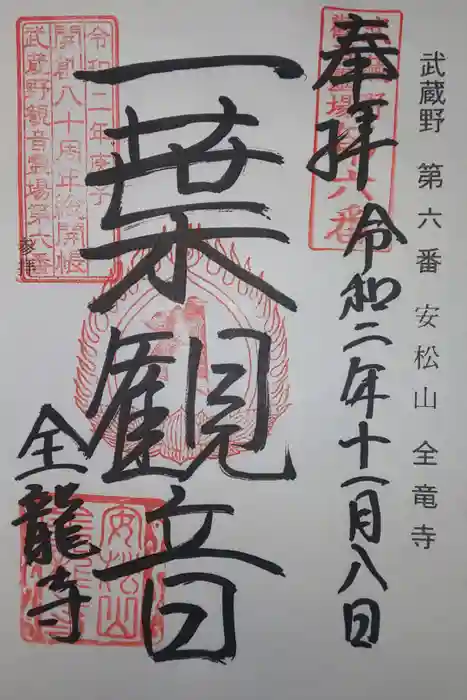 武蔵野 第六番 安松山 全竜寺
奉拝 令和二年十一月八日
一葉観音
全龍寺
令和二年庚子
開創八十周年総開帳
武蔵野観音霊場第六番
参拝
安松山